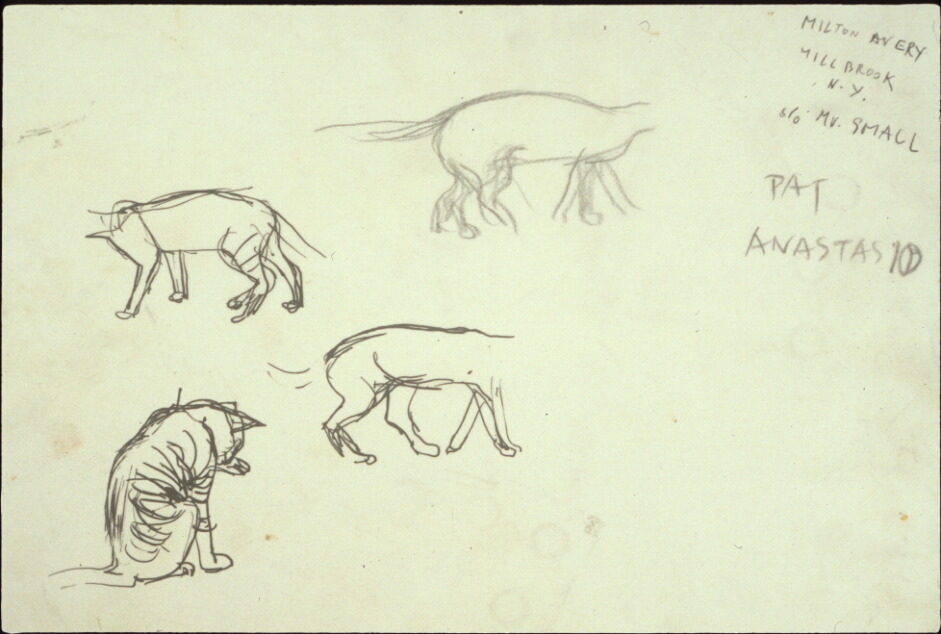 MILTON AVERY
MILLBROOK
N.Y.
c/o MR. SMALL
PAT
ANASTAS10